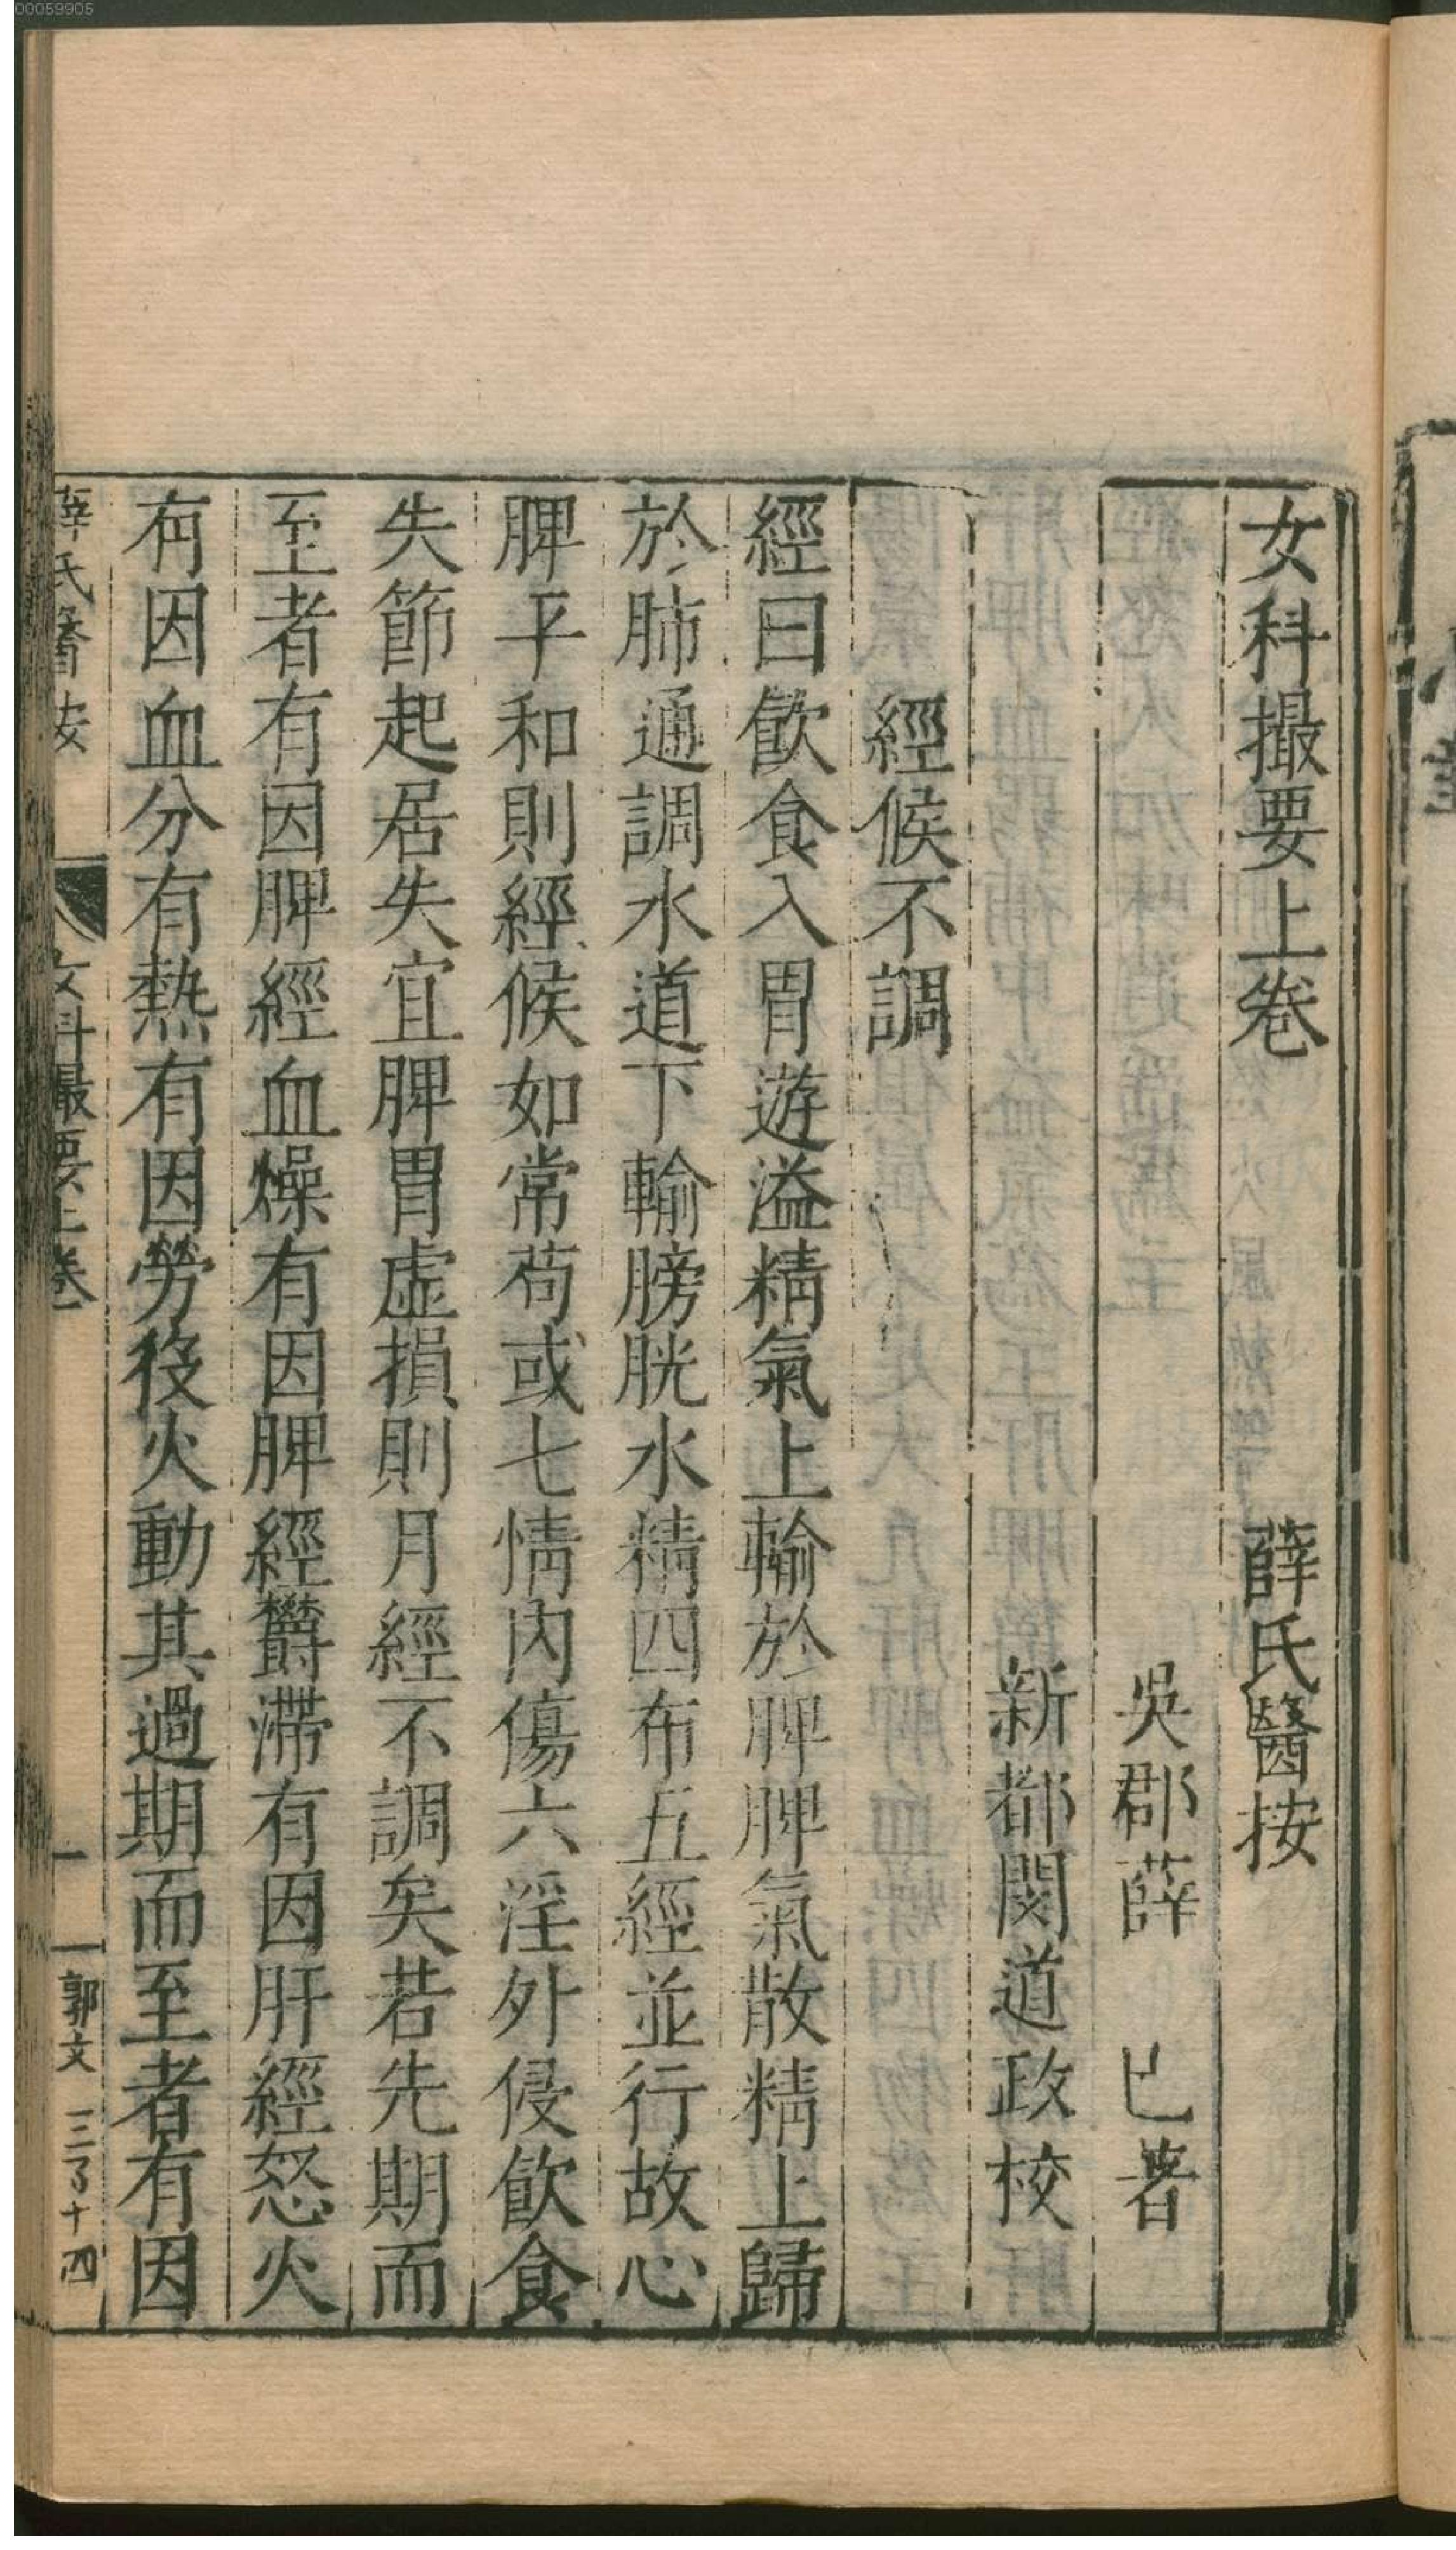 00059905
女科撮要上卷 薛氏醫按
吳郡薛 己著
新都閔道政校
經候不調
經曰飲食入胃遊溢精氣上輸於脾脾氣散精上歸
於肺通調水道下輸膀胱水精四布五經並行故心
脾平和則經候如常苟或七情內傷六淫外侵飲食
失節起居失宜脾胃虛損則月經不調矣若先期而
至者有因脾經血燥有因脾經欝滯有因肝經怒火
有因血分有熱有因勞役火動其過期而至者有因
薛氏醫按 女科撮要上卷 一 郭文 三了十四